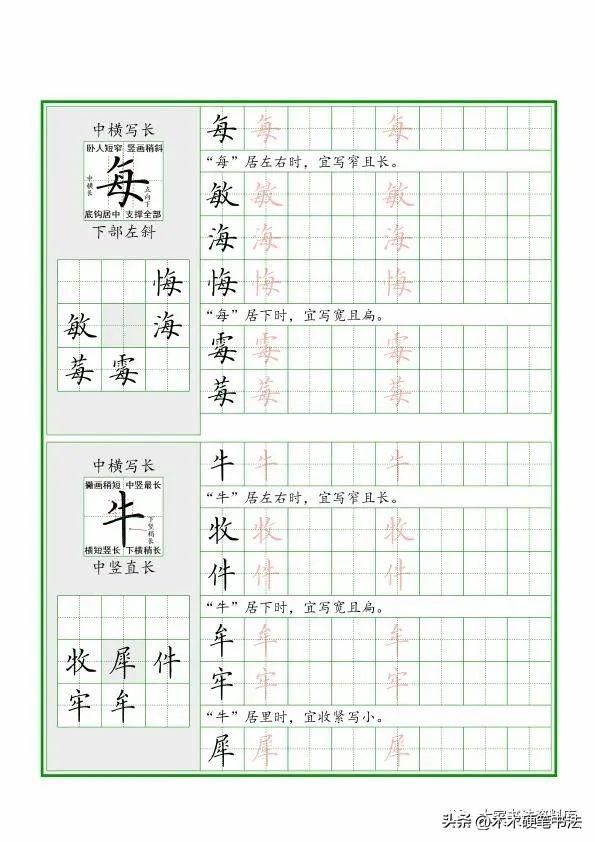 中横写长
卧人短窄 竖画稍斜
每
中横长
点向下
底钩居中 支撑全部
下部左斜
悔
敏 海
莓 霉
每 每 每
“每”居左右时，宜写窄且长。
敏 敏 敏
海 海 海
悔 悔 悔
“每”居下时，宜写宽且扁。
霉 霉 霉
莓 莓 莓
中横写长
撇画稍短 中竖最长
牛
下竖稍长
横短竖长 下横稍长
中竖直长
牧 犀 件
牢 牟
牛 牛 牛
“牛”居左右时，宜写窄且长。
牧 牧 牧
件 件 件
“牛”居下时，宜写宽且扁。
牟 牟 牟
牢 牢 牢
“牛”居里时，宜收紧写小。
犀 犀 犀
头条 @木木硬笔书法